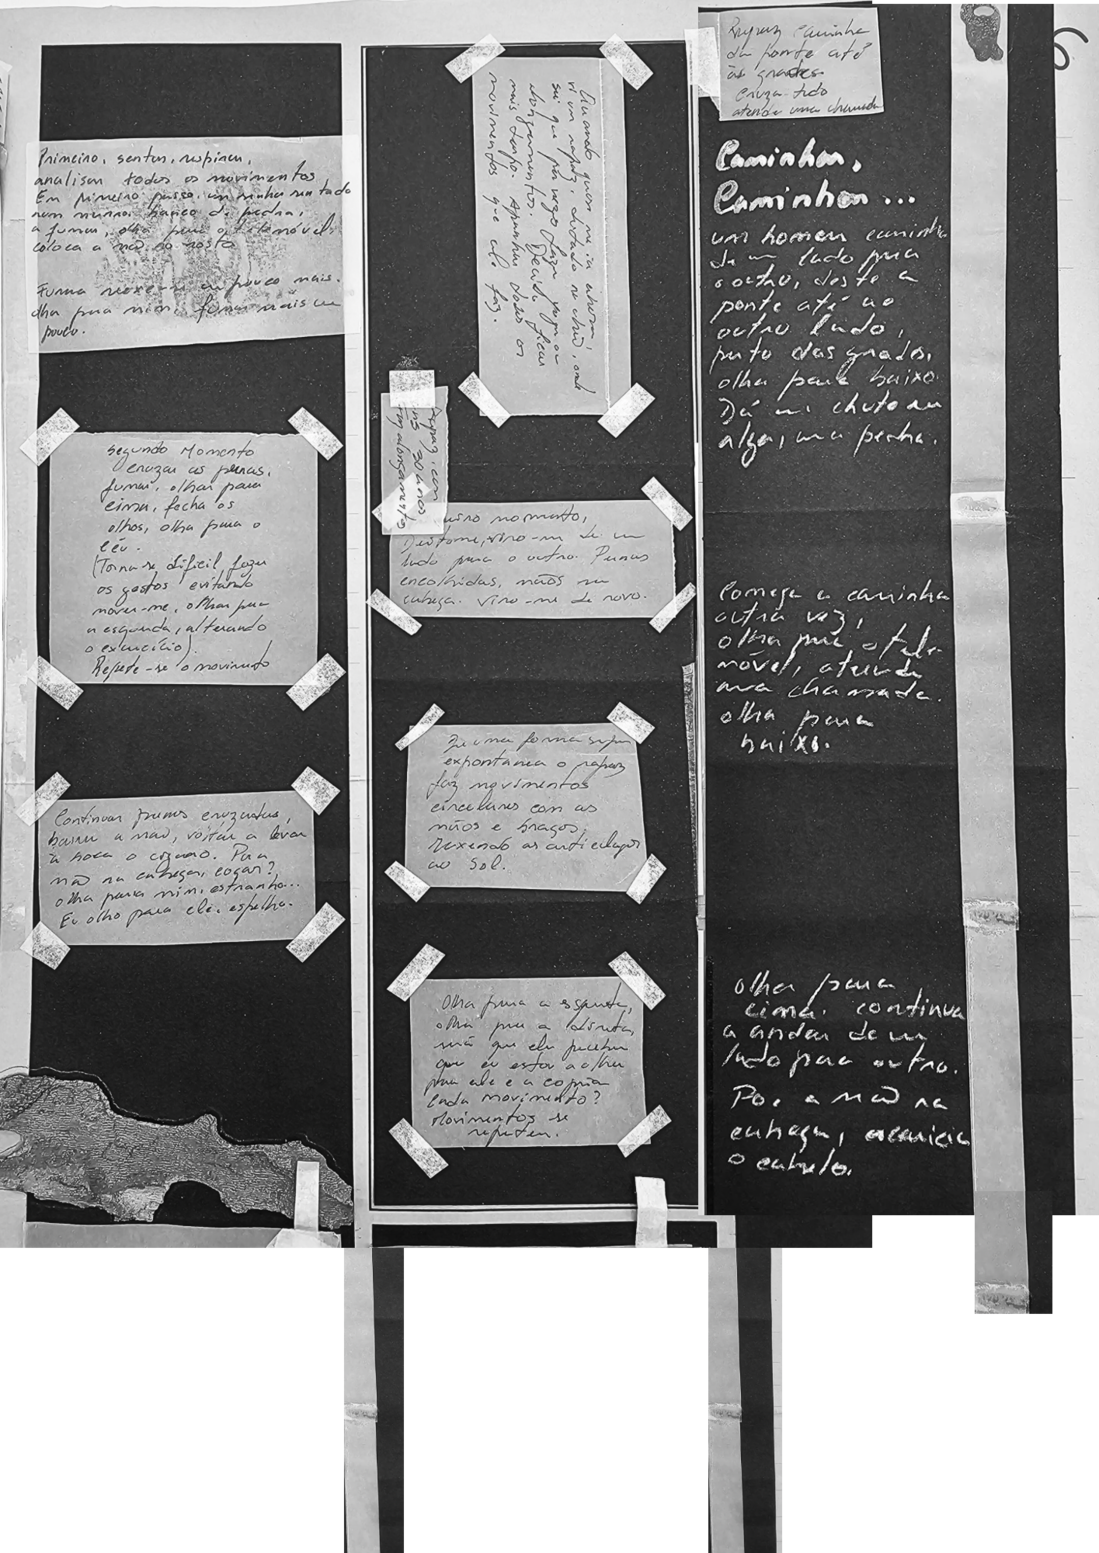 Primeiro, sentar, respirar,
analisar todos os movimentos
Em primeiro passo, um
num banco de pedra,
a fumar, olha para o telemóvel
coloca a mão no rosto
Fuma mexe-se um pouco mais.
olha para mim, fuma mais um
pouco.
Segundo Momento
cruzar as pernas,
fumar, olhar para
cima, fecha os
olhos, olha para o
céu.
(Torna-se difícil, fazer
os gestos evitando
mover-me, olhar para
a esquerda, alterando
o exercício).
Repete-se o movimento
Continuar pernas cruzadas,
baixar a mão, voltar a levar
à boca o cigarro. Põe
mão na cabeça, coçar?
olha para mim, estranho...
Eu olho para ele, espelho.
Quando quem me ia embora,
vi um rapaz, deitado no chão, onde
sei que por vezes fazem yoga ou
alongamentos. Decidi ficar
mais tempo. Apanhar todos os
movimentos que ele faz.
Rapaz com
uns 30 anos
faz alongamentos
momento,
Deitome, viro-me de um
lado para o outro. Pernas
encolhidas, mãos na
cabeça. Viro-me de novo.
De uma forma super
expontanea o rapaz
faz movimentos
circulares com as
mãos e braços,
mexendo as articulações
ao sol.
Olha para a esquerda,
olha para a direita,
será que ele percebeu
que eu estou a olhar
para ele e a copiar
cada movimento?
Movimentos se
repetem.
Rapaz caminha
da ponte até
às grades
cruza tudo
atende uma chamada
Caminhar,
Caminhar...
um homem caminha
de um lado para
o outro, deste a
ponte até ao
outro lado,
perto das grades,
olha para baixo.
Dá um chuto em
algo, uma pedra.
Começa a caminhar
outra vez,
olha para o tele-
móvel, atende
uma chamada.
olha para
baixo.
olha para
cima. continua
a andar de um
lado para outro.
Põe a mão na
cabeça, acaricia
o cabelo.